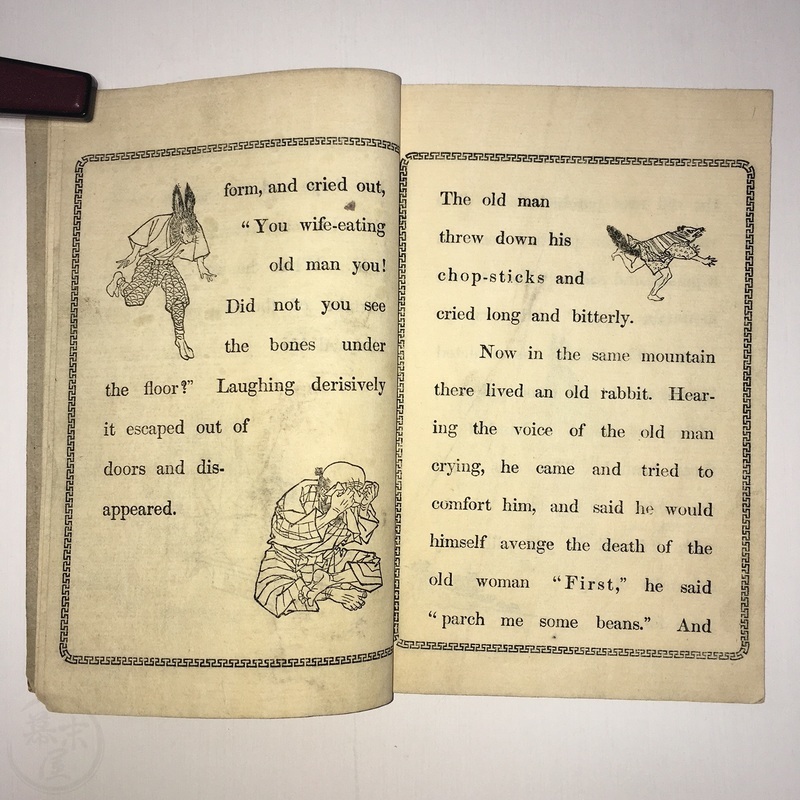 form, and cried out,
“You wife-eating
old man you!
Did not you see
the bones under
the floor?” Laughing derisively
it escaped out of
doors and dis-
appeared.
The old man
threw down his
chop-sticks and
cried long and bitterly.
Now in the same mountain
there lived an old rabbit. Hear-
ing the voice of the old man
crying, he came and tried to
comfort him, and said he would
himself avenge the death of the
old woman “First,” he said
“parch me some beans.” And